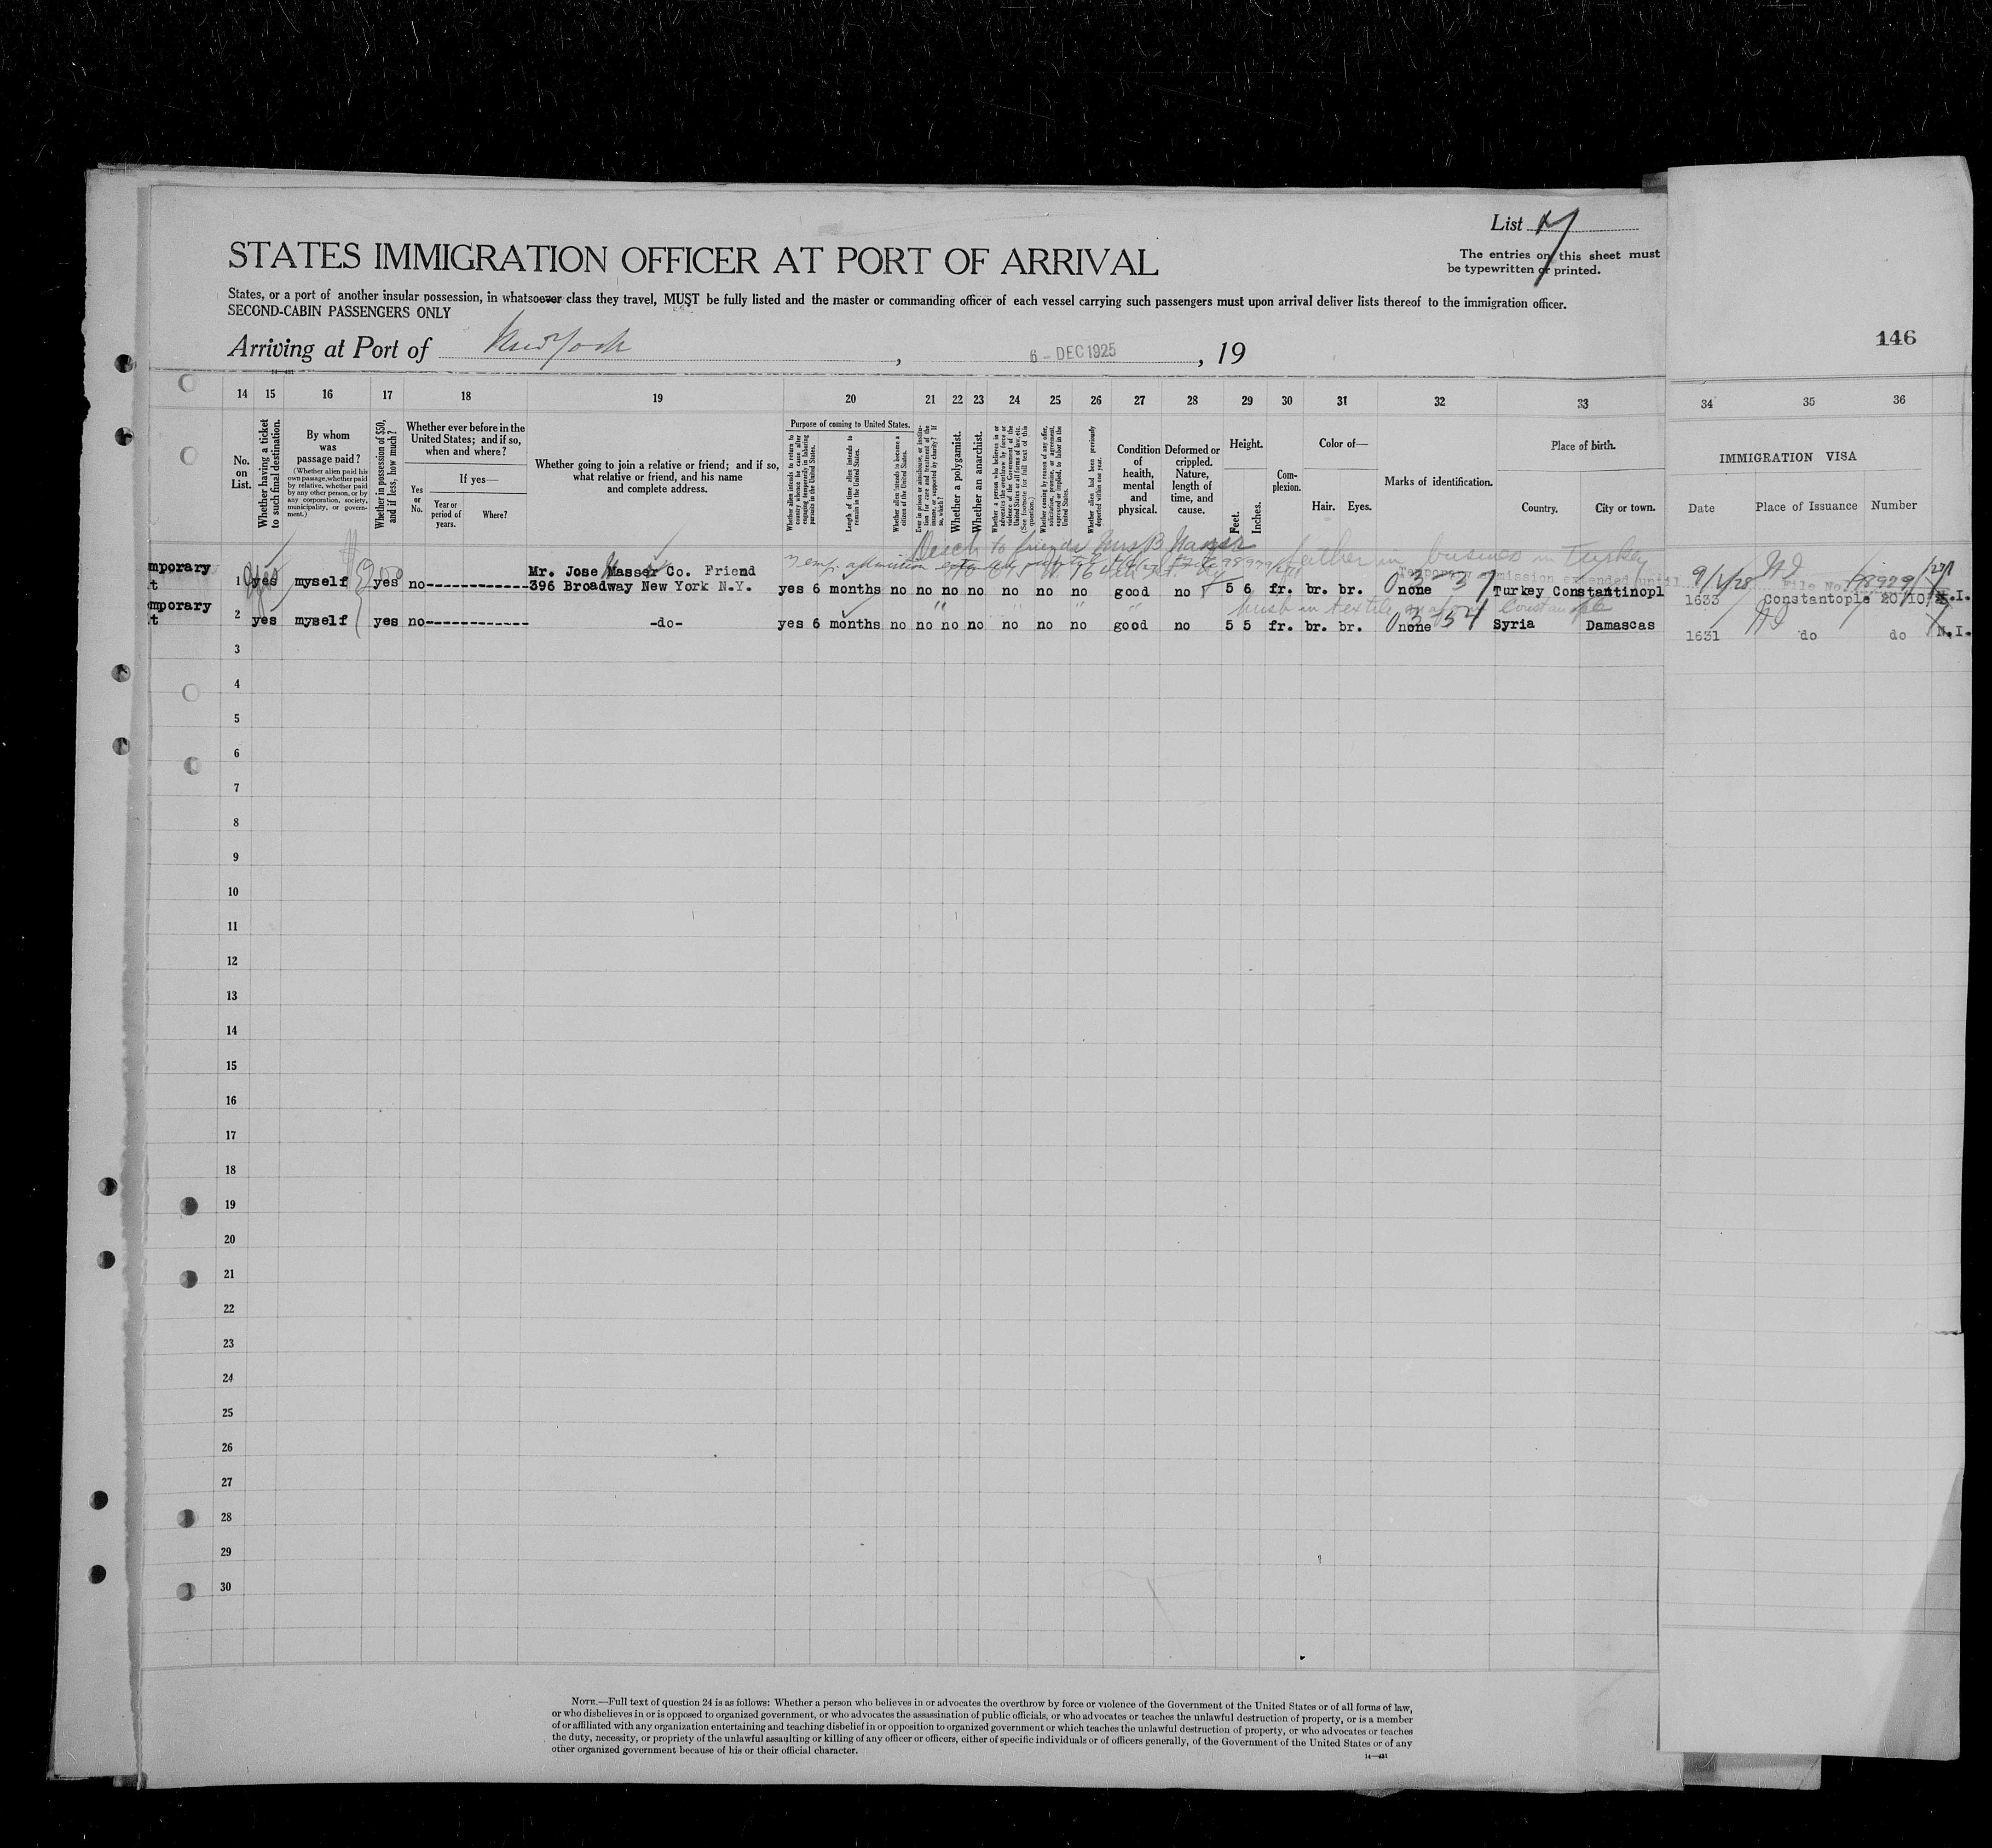 List
The entries on this sheet must
be typewritten or printed.
STATES IMMIGRATION OFFICER AT PORT OF ARRIVAL
States, or a port of another insular possession, in whatsoever class they travel, MUST be fully listed and the master or commanding officer of each vessel carrying such passengers must upon arrival deliver lists thereof to the immigration officer.
SECOND-CABIN PASSENGERS ONLY
Arriving at Port of New York, 6 - DEC 1925, 19
146
14—431
14 15 16 17 18 19 20 21 22 23 24 25 26 27 28 29 30 31 32 33 34 35 36
No. on List.
Whether having a ticket to such final destination.
By whom was passage paid?
(Whether alien paid his own passage, whether paid by relative, whether paid by any other person, or by any corporation, society, municipality, or government.)
Whether in possession of $50, and if less, how much?
Whether ever before in the United States; and if so, when and where?
Yes or No.
If yes—
Year or period of years.
Where?
Whether going to join a relative or friend; and if so, what relative or friend, and his name and complete address.
Purpose of coming to United States.
Whether alien intends to return to country whence he came after engaging temporarily in laboring pursuits in the United States.
Length of time alien intends to remain in the United States.
Whether alien intends to become a citizen of the United States.
Ever in prison or almshouse, or institution for care and treatment of the insane, or supported by charity? If so, which?
Whether a polygamist.
Whether an anarchist.
Whether a person who believes in or advocates the overthrow by force or violence of the Government of the United States or all forms of law, etc. (See footnote for full text of this question.)
Whether coming by reason of any offer, solicitation, promise, or agreement, expressed or implied, to labor in the United States.
Whether alien had been previously deported within one year.
Condition of health, mental and physical.
Deformed or crippled. Nature, length of time, and cause.
Height.
Feet. Inches.
Complexion.
Color of—
Hair. Eyes.
Marks of identification.
Place of birth.
Country. City or town.
IMMIGRATION VISA
Date Place of Issuance Number
to friends Mrs B
father in business in Turkey
mporary
t
1 yes myself yes no------------ Mr. Jose Masser Co. Friend
396 Broadway New York N.Y. yes 6 months no no no no no no no good no 5 6 fr. br. br. none Turkey Constantinopl
1633 Constantople 20/10/ N.I.
mporary
t
2 yes myself yes no------------ -do- yes 6 months no no no no no no no good no 5 5 fr. br. br. none Syria Damascas
1631 do do N.I.
3
4
5
6
7
8
9
10
11
12
13
14
15
16
17
18
19
20
21
22
23
24
25
26
27
28
29
30
NOTE.—Full text of question 24 is as follows: Whether a person who believes in or advocates the overthrow by force or violence of the Government of the United States or of all forms of law,
or who disbelieves in or is opposed to organized government, or who advocates the assassination of public officials, or who advocates or teaches the unlawful destruction of property, or is a member
of or affiliated with any organization entertaining and teaching disbelief in or opposition to organized government or which teaches the unlawful destruction of property, or who advocates or teaches
the duty, necessity, or propriety of the unlawful assaulting or killing of any officer or officers, either of specific individuals or of officers generally, of the Government of the United States or of any
other organized government because of his or their official character.
14—431